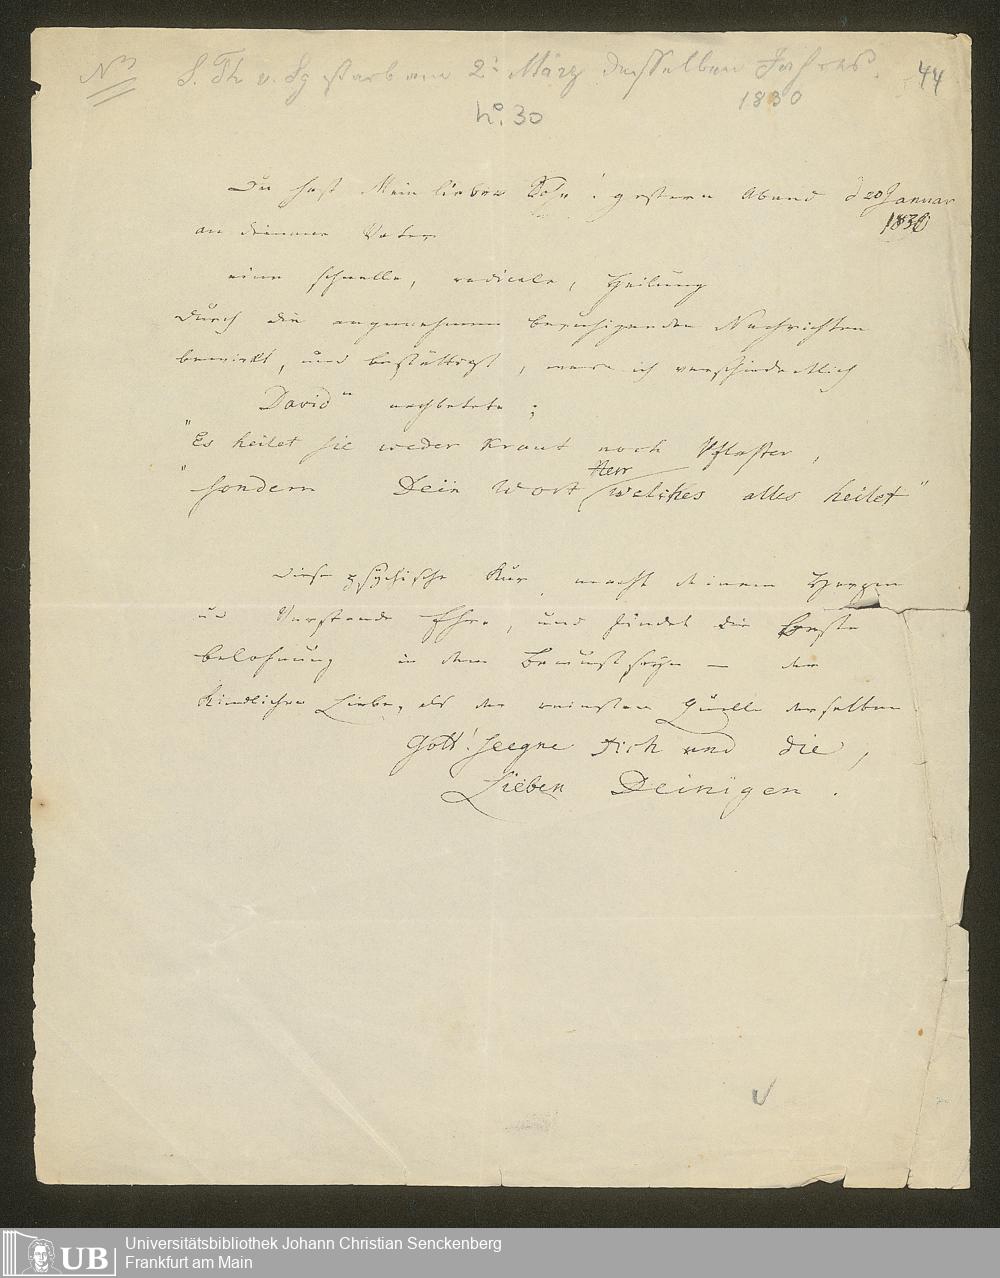 N° S. Th v. Sg starb am 2t März desselben Jahres. 44
1830
No. 30
Du hast Mein lieber Sohn! gestern Abend d 20 Januar
1830
an deinem Vater
eine schnelle, radicale, Heilung
durch die angenehmen beruhigenden Nachrichten
bewirkt, und bestättigt, was ich
David nachbetete;
"Es heilet sie weder Kraut noch Pflaster,
Herr
"sondern Dein Wort welches alles heilet"
Diese psychische Kur, macht deinem Herzen
und Verstande Ehre, und findet die beste
belohnung in dem Bewustseyn — der
Kindlichen Liebe, als der reinsten Quelle derselben
Gott! seegne Dich und die,
Lieben Deinigen.
UB
Universitätsbibliothek Johann Christian Senckenberg
Frankfurt am Main